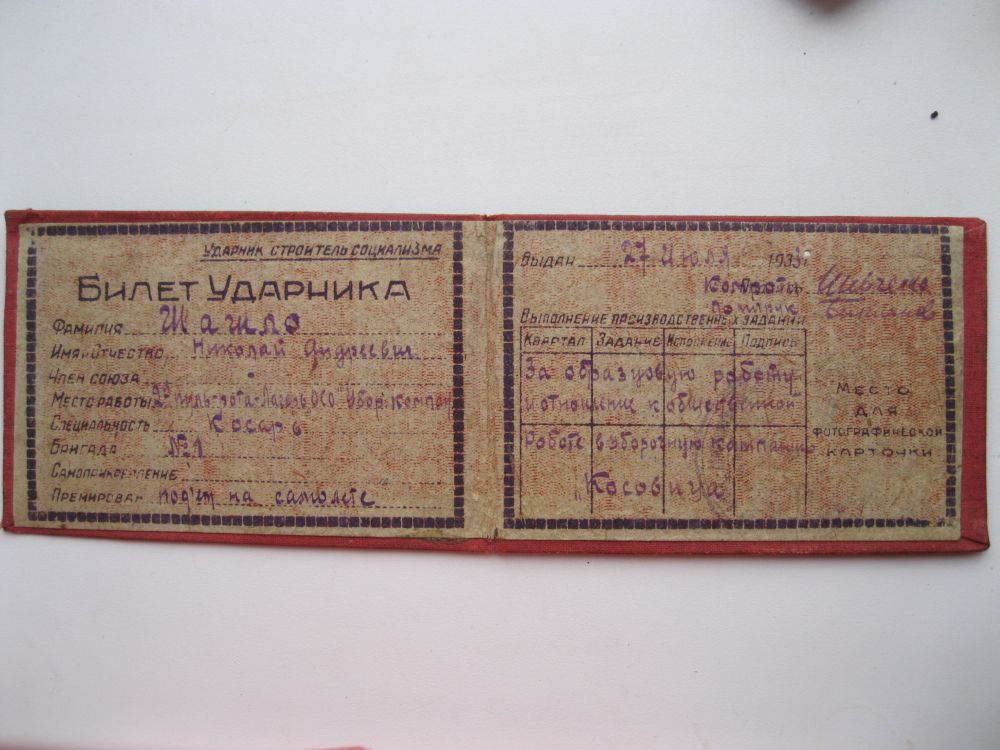 Ударник строитель социализма
Билет Ударника
Фамилия Шагило
Имя, Отчество Николай Андреевич
Член союза -
Место работы 2я пуль-рота-Лагерь ОСО Убор. кампан
Специальность Косарь
Бригада №1
Самоприкрепление
Премирован под'ём на самолете
Выдан 27 Июля 1933
Комроты
Политрук
Выполнение производственных заданий
Квартал Задание Исполнение Подпись
За образцовую работу
и отношение к общественной
работе в уборочную кампанию
"Косовица"
Место
для
фотографической
карточки